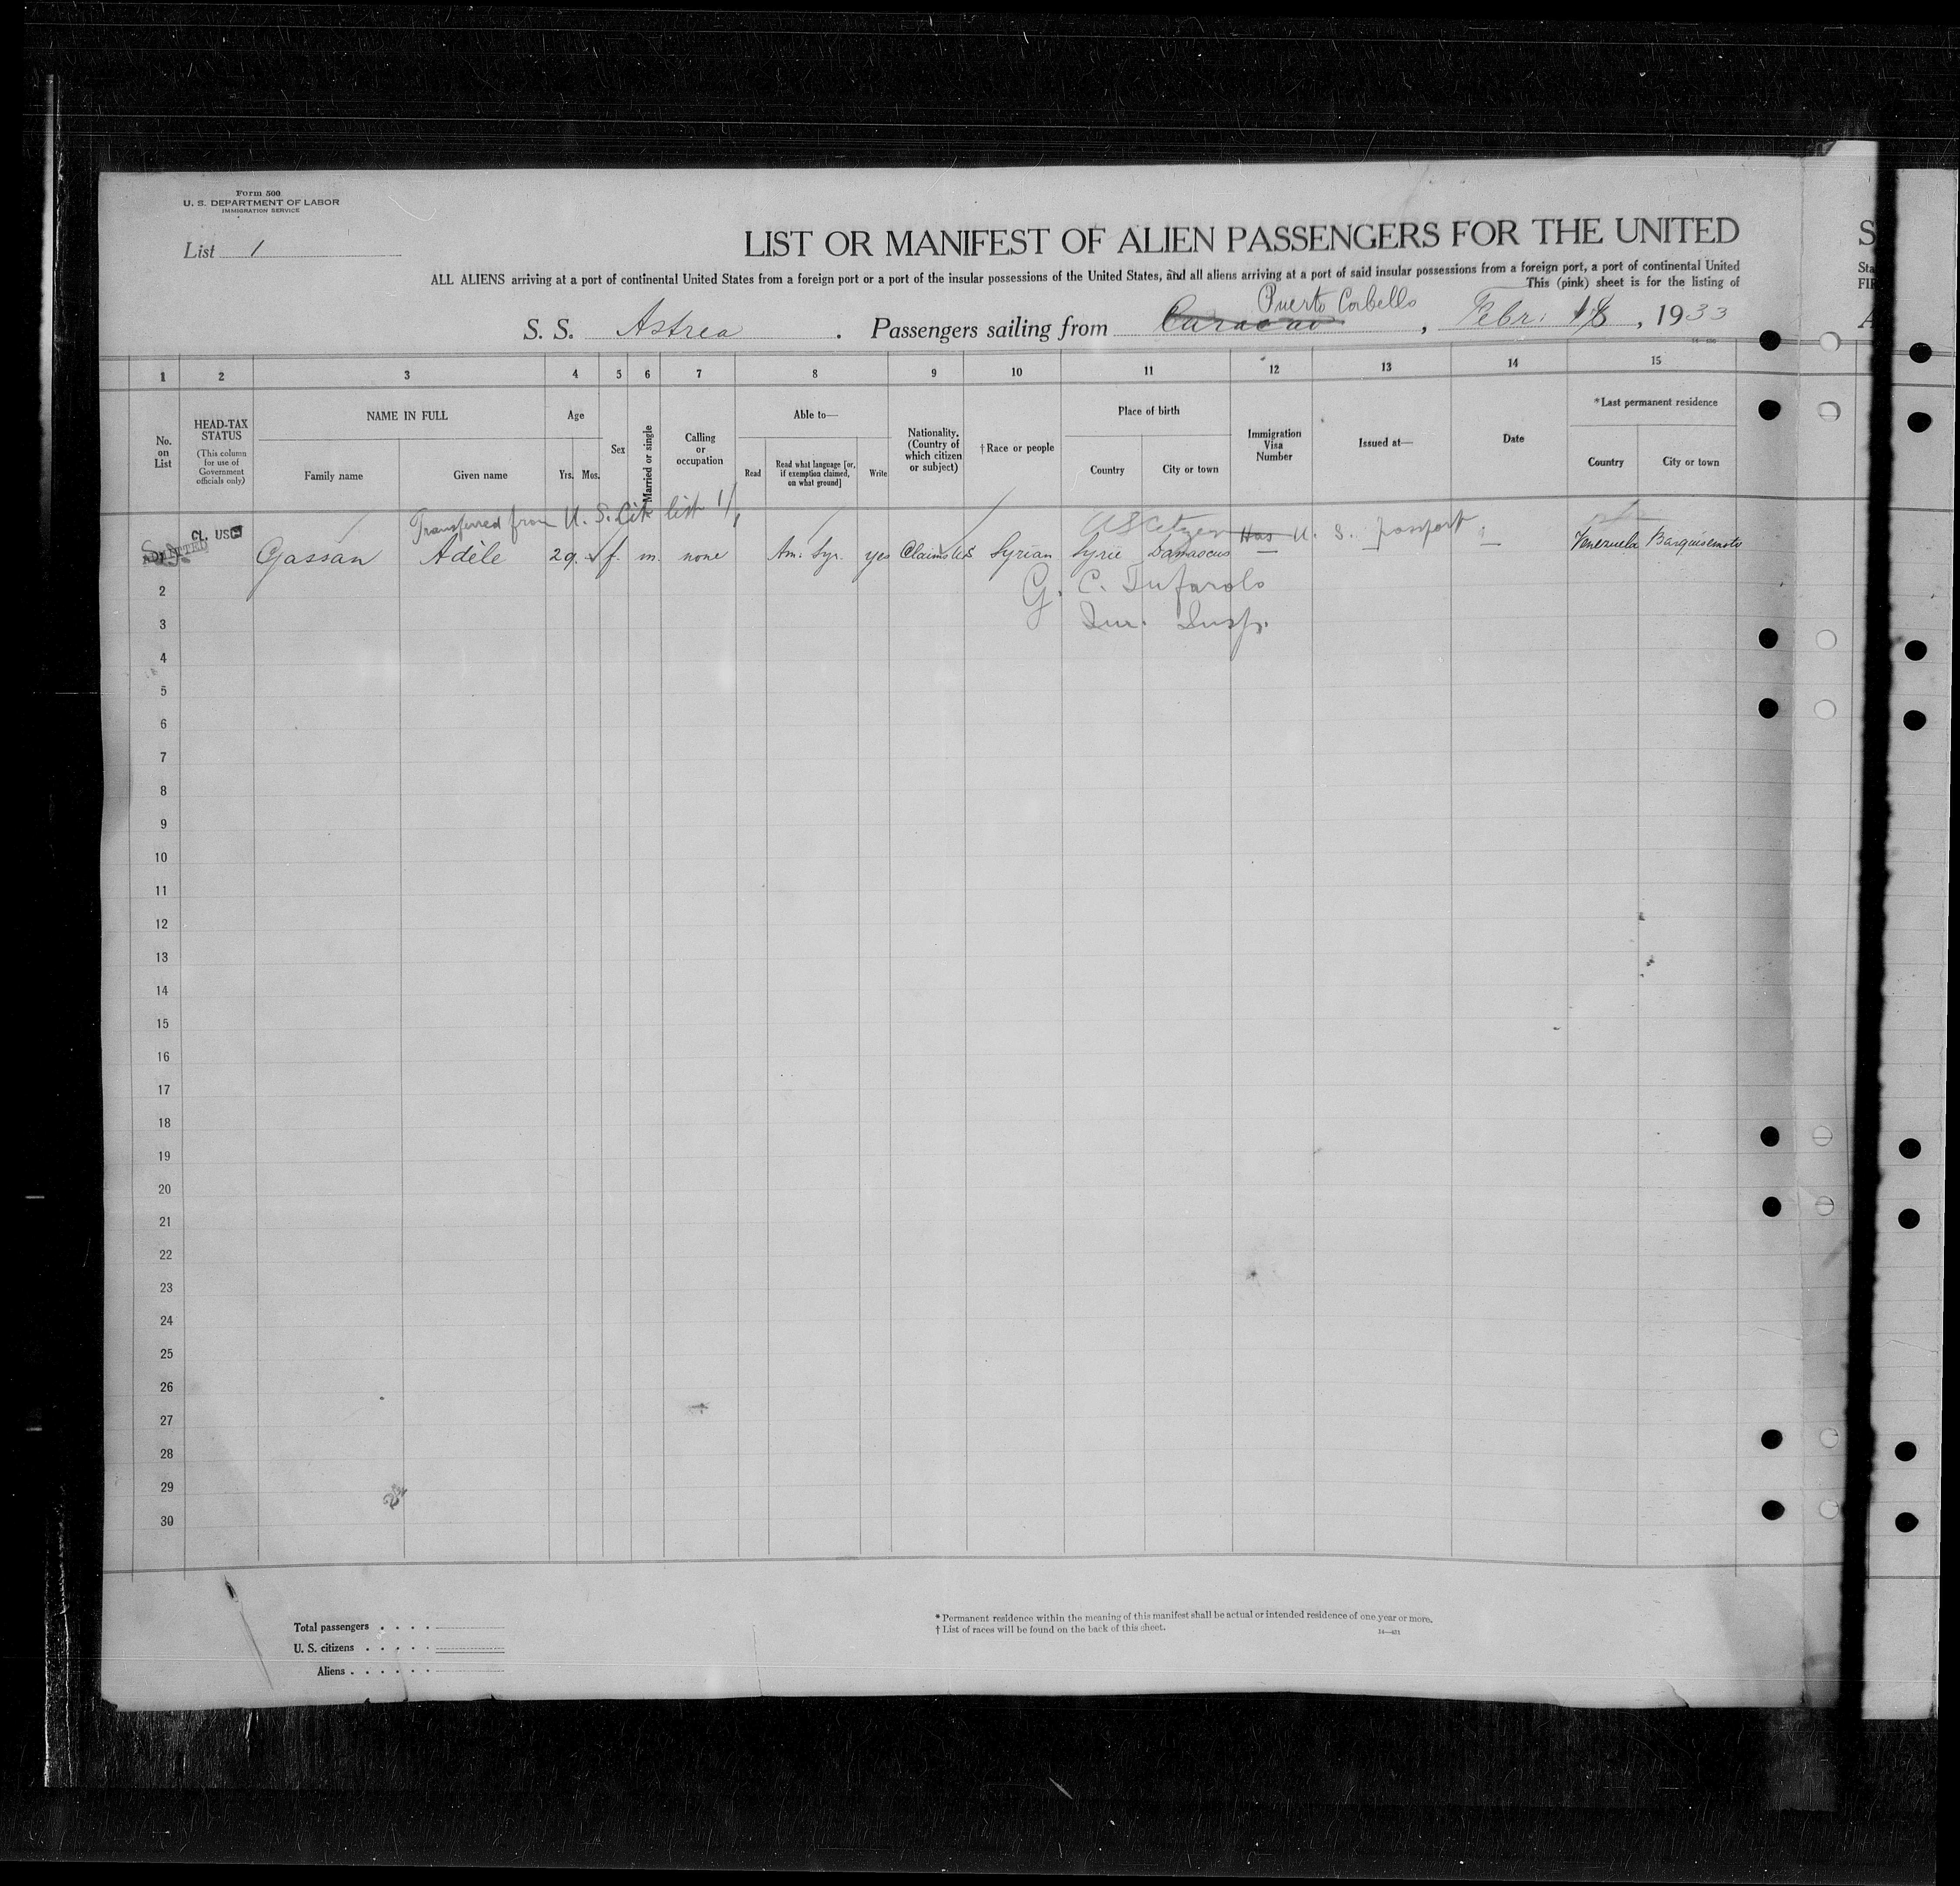 Form 500
U. S. DEPARTMENT OF LABOR
IMMIGRATION SERVICE
List 1
LIST OR MANIFEST OF ALIEN PASSENGERS FOR THE UNITED
ALL ALIENS arriving at a port of continental United States from a foreign port or a port of the insular possessions of the United States, and all aliens arriving at a port of said insular possessions from a foreign port, a port of continental United
This (pink) sheet is for the listing of
Puerto Cabello
S. S. Astrea . Passengers sailing from Curacao , Febr. 18 , 1933
1 2 3 4 5 6 7 8 9 10 11 12 13 14 15
No. on List
HEAD-TAX STATUS
(This column for use of Government officials only)
NAME IN FULL
Family name
Given name
Age
Yrs. Mos.
Sex
Married or single
Calling or occupation
Able to—
Read
Read what language [or, if exemption claimed, on what ground]
Write
Nationality. (Country of which citizen or subject)
† Race or people
Place of birth
Country
City or town
Immigration Visa Number
Issued at—
Date
* Last permanent residence
Country
City or town
Transferred from U. S. Cit list 1/1
US Citizen Has U. S. passport
CL. USC
ADMITTED
Gassan Adèle 29 f. m. none Am. Syr. yes Claims U.S. Syrian Syrie Damascus — — Venezuela Barquisemoto
2
G. C. Tufarolo
3
Im. Insp.
4
5
6
7
8
9
10
11
12
13
14
15
16
17
18
19
20
21
22
23
24
25
26
27
28
29
30
Total passengers . . . .
U. S. citizens . . . . .
Aliens . . . . . .
* Permanent residence within the meaning of this manifest shall be actual or intended residence of one year or more.
† List of races will be found on the back of this sheet.